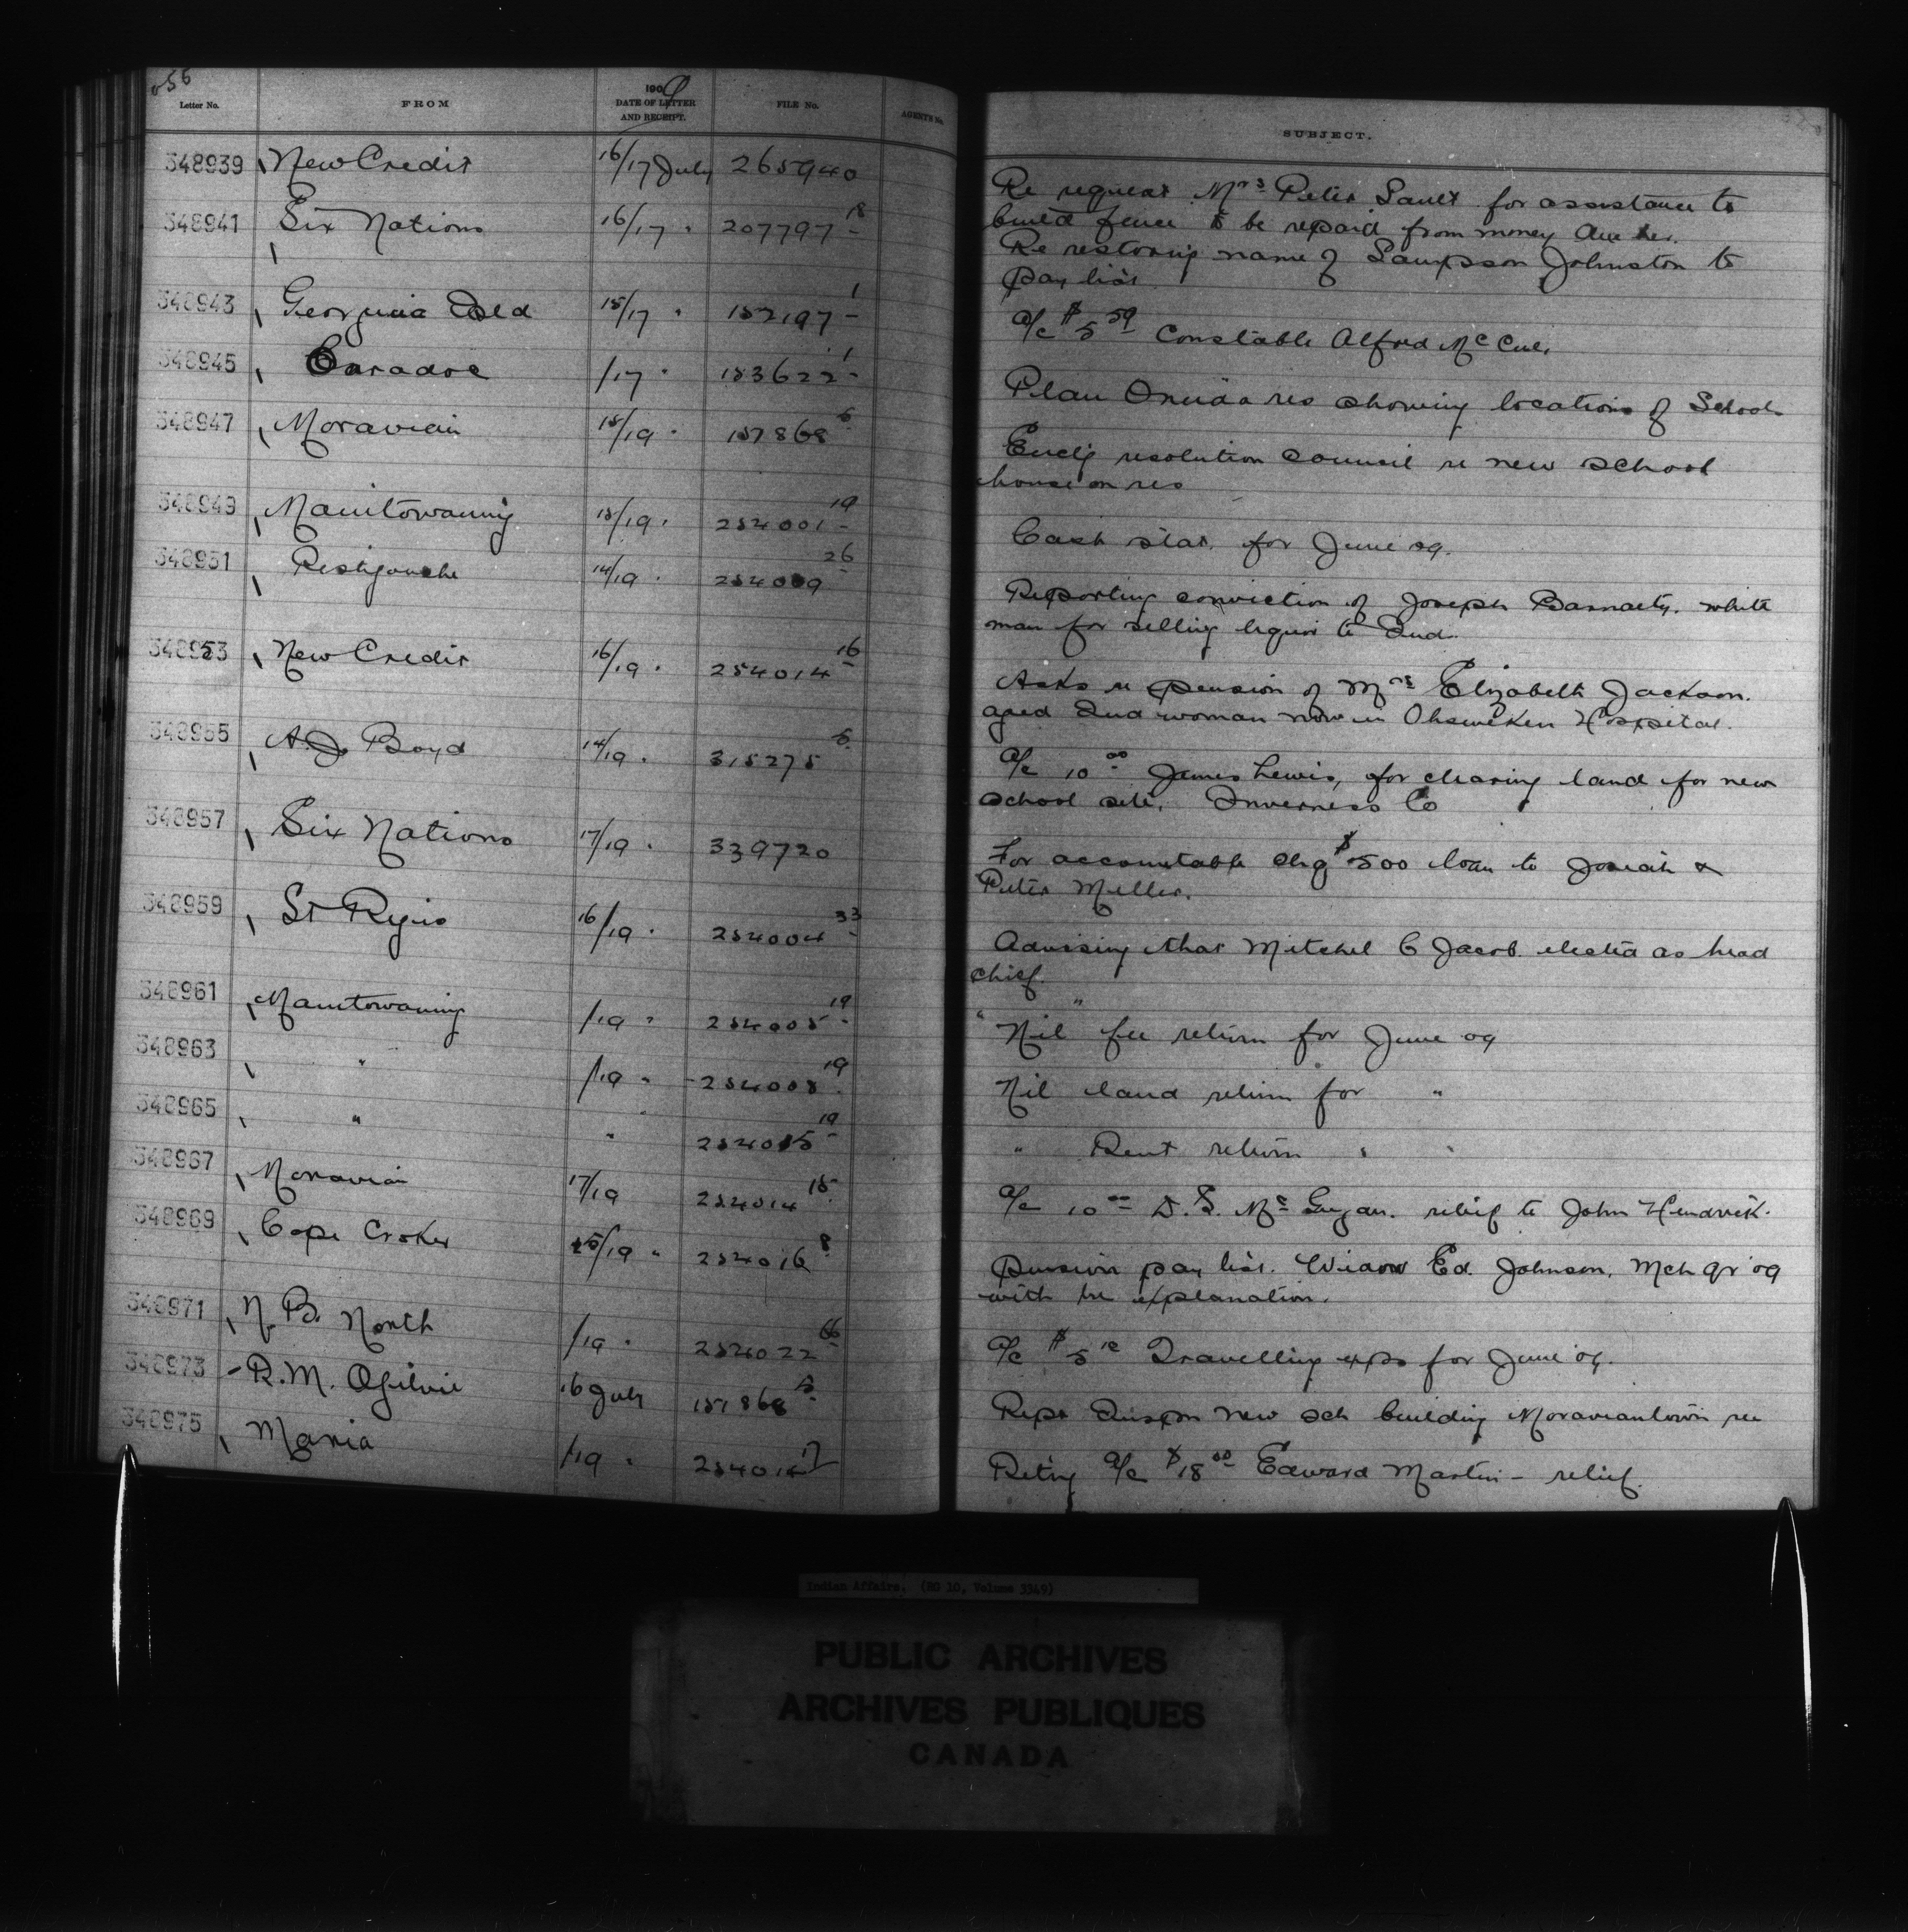 056
Letter No. FROM 1909 DATE OF LETTER AND RECEIPT. FILE No. AGENTS No. SUBJECT.
348939 New Credit 16/17 July 265940 Re request Mrs Peter Sault for assistance to
build fence to be repaid from money due her.
348941 Six Nations 16/17 " 207797 18 Re restoring name of Sampson Johnston to
pay list.
348943 Georgina Isld 15/17 " 152197 1 a/c $5 59 Constable Alfred McCue.
348945 Caradoc /17 " 153622 1 Plan Oneida res showing locations of Schools
348947 Moravian 15/19 " 157868 5 Enclg resolution council re new school
house on res
348949 Manitowaning 15/19 " 254001 19 Cash stat. for June 09.
348951 Restigouche 14/19 " 254009 26 Reporting conviction of Joseph white
man for selling liquor to Ind.
348953 New Credit 16/19 " 254014 16 Asks re pension of Mrs Elizabeth Jackson.
aged Ind woman now in Ohsweken Hospital.
348955 A.J. Boyd 14/19 " 315275 5 a/c 10 00 James Lewis, for clearing land for new
school site. Inverness Co
348957 Six Nations 17/19 " 339720 For accountable chq $500 loan to Josiah &
Peter Miller.
348959 St Regis 16/19 " 254004 33 Advising that Mitchel C Jacob elected as head
chief.
348961 Manitowaning /19 " 254005 19 Nil fee return for June 09
348963 " /19 " 254008 19 Nil land return for "
348965 " " 254015 19 " Rent return " "
348967 Moravian 17/19 254014 15 a/c 10 00 D.S. McGugan. relief to John Hendrick.
348969 Cape Croker 15/19 " 254016 8 Pension pay list. Widow Ed. Johnson, Mch qr 09
with explanation.
348971 N.B. North /19 " 254022 66 a/c $5 10 Travelling exps for June 09.
348973 R.M. Ogilvie 16 July 157868 5 Rept Inspn new sch building Moraviantown res
348975 Maria /19 " 254014 17 Retng a/c $18 00 Edward Martin - relief.
Indian Affairs. (RG 10, Volume 3349)
PUBLIC ARCHIVES
ARCHIVES PUBLIQUES
CANADA